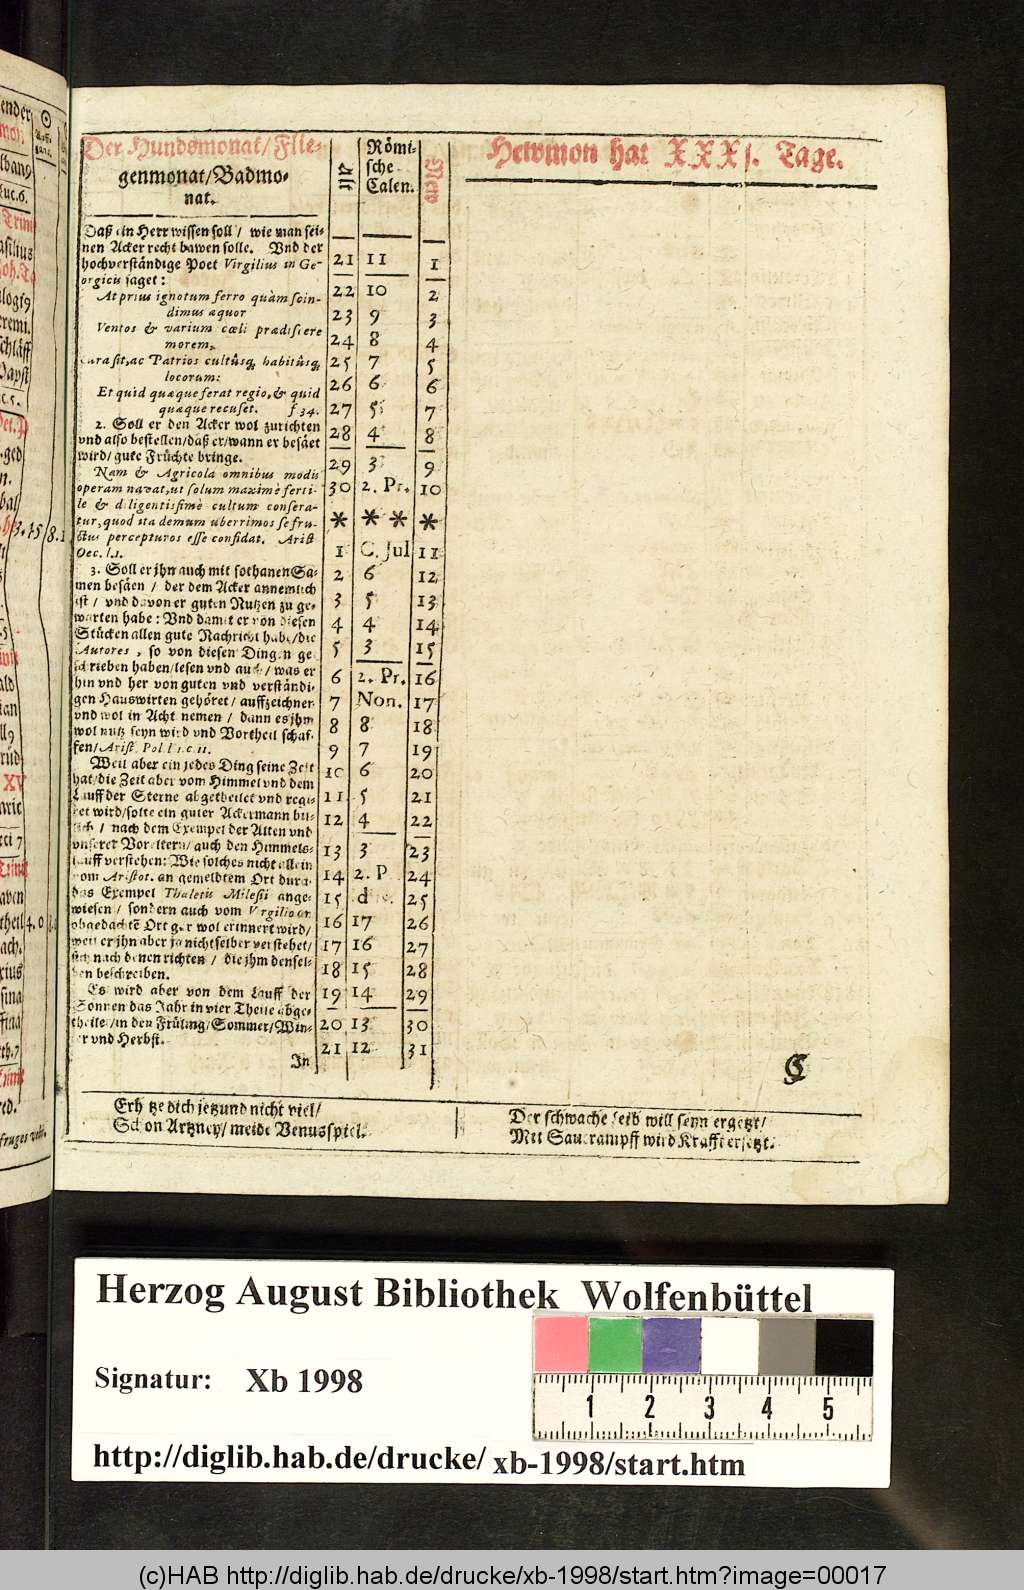 Der Hundsmonat/Flie-
genmonat/Badmo-
nat.
Alt
Römi-
sche
Calen.
New
Hewmon hat XXXj. Tage.
Daß ein Herr wissen soll / wie man sei-
nen Acker recht bawen solle. Vnd der
hochverständige Poet Virgilius in Ge-
orgicis saget:
At prius ignotum ferro quàm scin-
dimus æquor
Ventos & varium cœli prædiscere
morem,
Cura sit, ac Patrios cultûsq; habitûsq;
locorum:
Et quid quæque ferat regio, & quid
quæque recuset. f 34.
2. Soll er den Acker wol zurichten
vnd also bestellen/daß er/wann er besäet
wird/gute Früchte bringe.
Nam & Agricola omnibus modis
operam navat, ut solum maximè ferti-
le & diligentissimè cultum conserа-
tur, quod ita demum uberrimos se fru-
ctus percepturos esse confidat. Arist
Oec. l.1.
3. Soll er jhn auch mit sothanen Sa-
men besäen / der dem Acker annemlich
ist / vnd davon er guten Nutzen zu ge-
warten habe: Vnd damit er von diesen
Stücken allen gute Nachricht habe/die
Autores, so von diesen Dingen ge
schrieben haben/lesen vnd auch/ was er
hin vnd her von guten vnd verständi-
gen Hauswirten gehöret/ auffzeichnen
vnd wol in Acht nemen / dann es jhm
wol nutz seyn wird vnd Vortheil schaf-
fen/ Arist. Pol. l 1. c. 11.
Weil aber ein jedes Ding seine Zeit
hat/die Zeit aber vom Himmel vnd dem
Lauff der Sterne abgetheilet vnd regi-
ret wird/solte ein guter Ackermann bil-
lich / nach dem Exempel der Alten vnd
vnserer Voreltern/ auch den Himmels-
lauff verstehen: Wie solches nicht allein
vom Aristot. an gemeldtem Ort durch
das Exempel Thaletis Milesii ange-
wiesen / sondern auch vom Virgilio an
obgedachtē Ort gar wol erinnert wird/
weil er jhn aber ja nicht selber verstehet/
sich nach denen richten / die jhm densel-
ben beschreiben.
Es wird aber von dem Lauff der
Sonnen das Jahr in vier Theile abge-
theilet/in den Früling/Sommer/Win-
ter vnd Herbst.
In
21 11 1
22 10 2
23 9 3
24 8 4
25 7 5
26 6 6
27 5 7
28 4 8
29 3 9
30 2. Pr. 10
* * * *
1 C. Jul 11
2 6 12
3 5 13
4 4 14
5 3 15
6 2. Pr. 16
7 Non. 17
8 8 18
9 7 19
10 6 20
11 5 21
12 4 22
13 3 23
14 2. P 24
15 25
16 17 26
17 16 27
18 15 28
19 14 29
20 13 30
21 12 31
C
dich jetzund nicht viel/
Schon Artzney/ meide Venusspiel.
Der schwache Leib will seyn ergetzt/
Mit Saurampff wird Krafft ersetzt.
Herzog August Bibliothek Wolfenbüttel
Signatur: Xb 1998
1 2 3 4 5
http://diglib.hab.de/drucke/ xb-1998/start.htm
(c)HAB http://diglib.hab.de/drucke/xb-1998/start.htm?image=00017